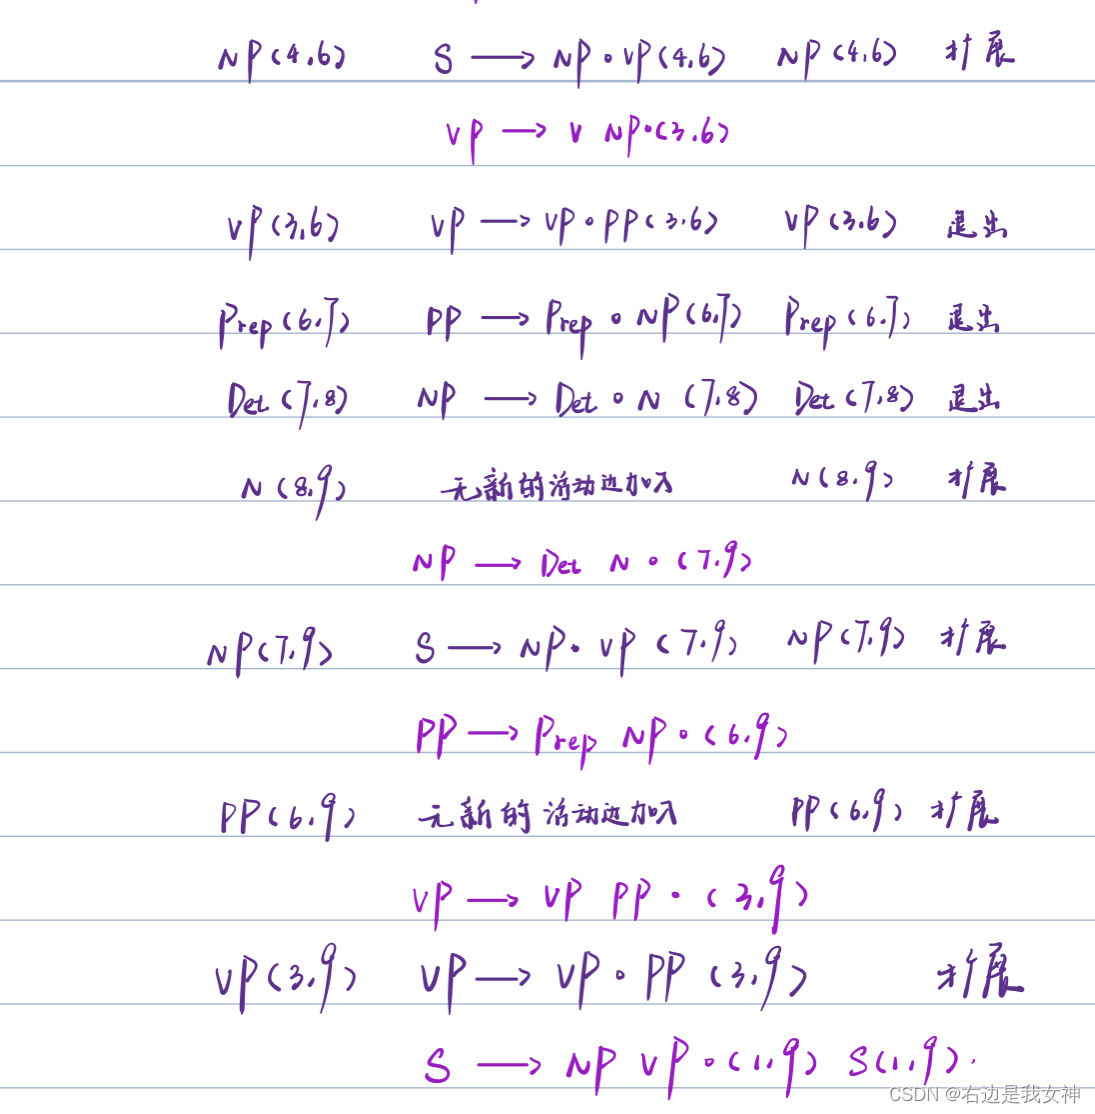 NP(4,6) S → NP∘VP(4,6) NP(4,6) 扩展
VP → V NP·(3,6)
VP(3,6) VP → VP∘PP(3,6) VP(3,6) 退出
Prep(6,7) PP → Prep∘NP(6,7) Prep(6,7) 退出
Det(7,8) NP → Det∘N(7,8) Det(7,8) 退出
N(8,9) 无新的活动边加入 N(8,9) 扩展
NP → Det N∘(7,9)
NP(7,9) S → NP·VP(7,9) NP(7,9) 扩展
PP → Prep NP∘(6,9)
PP(6,9) 无新的活动边加入 PP(6,9) 扩展
VP → VP PP·(3,9)
VP(3,9) VP → VP∘PP(3,9) 扩展
S → NP VP∘(1,9) S(1,9).
CSDN @右边是我女神